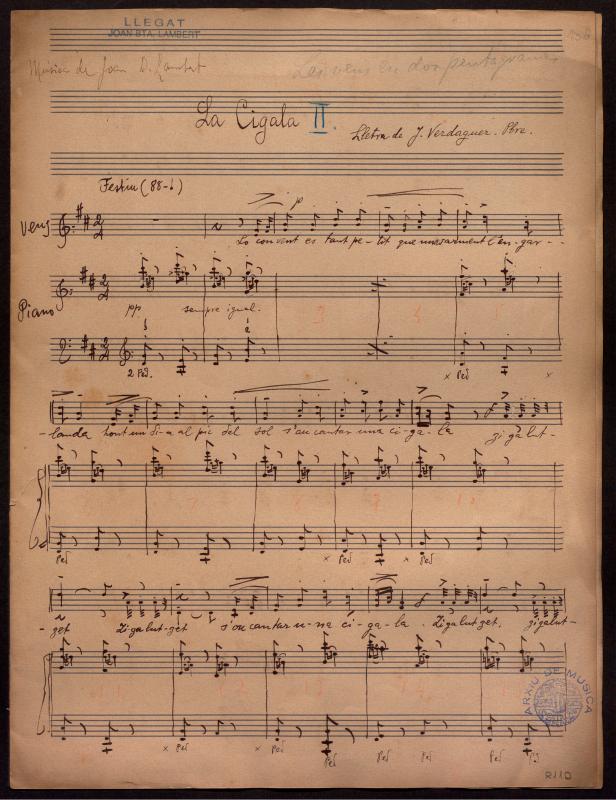 LLEGAT
JOAN BTA. LAMBERT
Música de Joan B. Lambert
Les veus en dos pentagrames
La Cigala II
Lletra de J. Verdaguer. Pbre.
Festiu (88=♩)
Veus
p
Lo convent es tant pe-tit que
l'en-gar--
Piano
pp. sempre igual.
3 4 5
2 Ped. × Ped ×
-landa hont un di-a al pic del sol s'ou cantar una ci-ga-la f zigalut-
6 7 8 9 10
Ped × Ped × Ped
-zet Zigalut-zet s'ou cantar u-na ci-ga-la. f Zigalutzet. zigalut-
11 12 13 14
× Ped × Ped Ped Ped Ped Ped
ARXIU DE MUSICA
R110